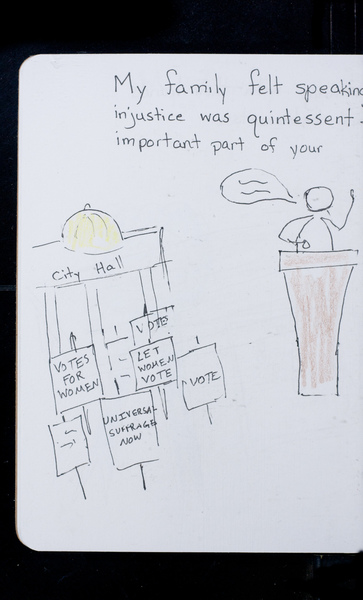 My family felt speaking
injustice was quintessent
important part of your
City Hall
VOTES
VOTES
FOR
WOMEN
LET
WOMEN
VOTE
VOTE
UNIVERSAL
SUFFRAGE
NOW